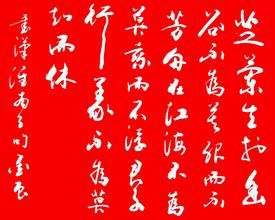 芝蘭生於幽
谷不為莫服而不
芳舟在江海不為
莫乘而不浮君子
行義不為莫
知而休
書漢淮南子句